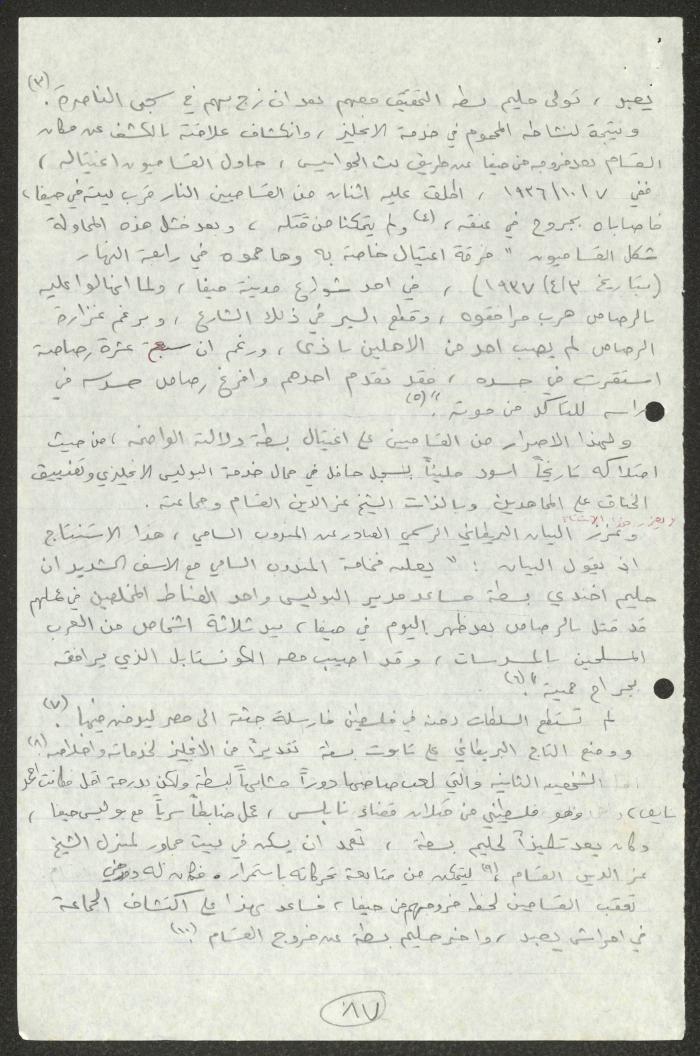 يعبد ، تولى حليم بسطه التحقيق معهم بعد ان زج بهم في سجن الناصرة . (٣)
ونتيجة لنشاطه المحموم في خدمة الانجليز ، وانكشاف علاقته بالكشف عن مكان
القسام بعد خروجه من حيفا عن طريق بث الجواسيس ، حاول القساميون اغتياله ،
ففي ١٩٣٦/١٠/٧ ، اطلق عليه اثنان من القساميين النار قرب بيته في حيفا ،
فاصاباه بجروح في عنقه ، (٤) ولم يتمكنا من قتله ، وبعد فشل هذه المحاولة
شكل القساميون " فرقة اغتيال خاصة به وهاجموه في رابعة النهار
(بتاريخ ١٩٣٧/٤/٣) ، في احد شوارع مدينة حيفا ، ولما انهالوا عليه
بالرصاص هرب مرافقوه ، وقطع السير في ذلك الشارع ، وبرغم غزارة
الرصاص لم يصب احد من الاهلين باذى ، ورغم ان سبع عشرة رصاصة
استقرت في جسده ، فقد تقدم احدهم وافرغ رصاص مسدسه في
راسه للتأكد من موته " . (٥)
ولهذا الاصرار من القساميين على اغتيال بسطة دلالته الواضحه ، من حيث
امتلاكه تاريخاً اسود مليئاً بسجل حافل في مجال خدمة البوليس الانجليزي وتضييق
الخناق على المجاهدين وبالذات الشيخ عز الدين القسام وجماعته .
ويعزز هذا الاستنتاج
وعزز البيان البريطاني الرسمي الصادر عن المندوب السامي ، هذا الاستنتاج
اذ يقول البيان : " يعلن فخامة المندوب السامي مع الاسف الشديد ان
حليم افندي بسطة مساعد مدير البوليس واحد الضباط المخلصين في عملهم
قد قتل بالرصاص بعد ظهر اليوم في حيفا ، بيد ثلاثة اشخاص من العرب
المسلحين بالمسدسات ، وقد اصيب معه الكونستابل الذي يرافقه
بجراح مميتة " . (٦)
لم تستطع السلطات دفنه في فلسطين فارسلت جثته الى مصر ليدفن فيها . (٧)
ووضع التاج البريطاني على تابوت بسطة تقديراً من الانجليز لخدماته واخلاصه . (٨)
اما الشخصية الثانية والتي لعب صاحبها دوراً مشابهاً لبسطة ولكن بدرجة اقل فكانت احمد
نايف ، وهو فلسطيني من قضاء نابلس ، عمل ضابطاً سرياً مع بوليس حيفا ،
وكان يعد تلميذاً لحليم بسطة ، تعمد ان يسكن في بيت مجاور لمنزل الشيخ
عز الدين القسام ، (٩) ليتمكن من متابعة تحركاته باستمرار . فكان له دور في
تعقب القساميين لحظة خروجهم من حيفا ، فساعد بهذا على اكتشاف الجماعة
في احراش يعبد ، واخبر حليم بسطة عن خروج القسام . (١٠)
٨٧